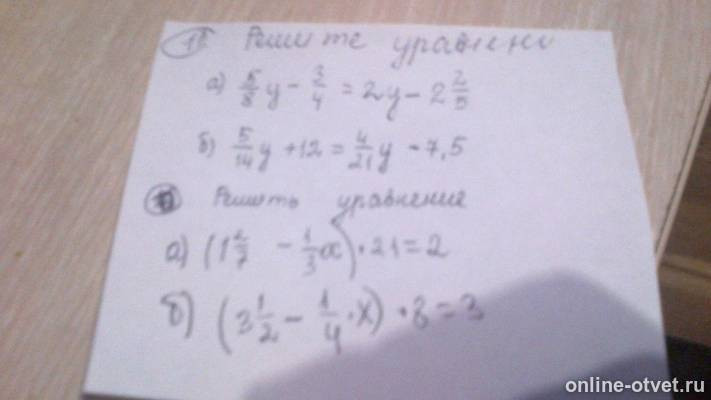 1) Решите уравнени
а) 5/8 y - 3/4 = 2y - 2 2/5
б) 5/14 y + 12 = 4/21 y - 7,5
Решить уравнение
а) (1 2/7 - 1/3 x) · 21 = 2
б) (3 1/2 - 1/4 · x) · 8 = 3
online-otvet.ru